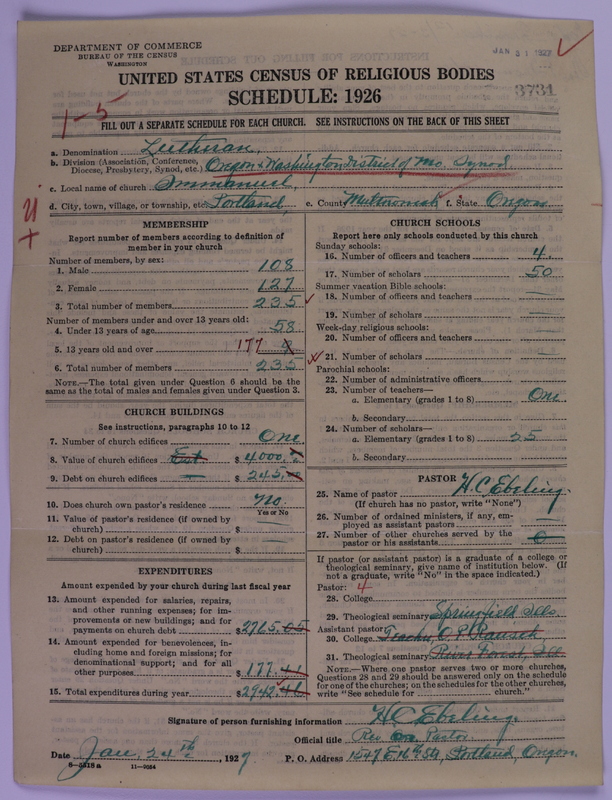 DEPARTMENT OF COMMERCE
BUREAU OF THE CENSUS
WASHINGTON
JAN 31 1927
UNITED STATES CENSUS OF RELIGIOUS BODIES
SCHEDULE: 1926
3731
1-5
FILL OUT A SEPARATE SCHEDULE FOR EACH CHURCH. SEE INSTRUCTIONS ON THE BACK OF THIS SHEET
a. Denomination Lutheran,
b. Division (Association, Conference, Diocese, Presbytery, Synod, etc.) Oregon & Washington District of Mo. Synod
c. Local name of church Immanuel,
d. City, town, village, or township, etc. Portland, e. County Multnomah f. State Oregon
MEMBERSHIP
Report number of members according to definition of
member in your church
Number of members, by sex:
1. Male 108
2. Female 127
3. Total number of members 235
Number of members under and over 13 years old:
4. Under 13 years of age 58
5. 13 years old and over 177
6. Total number of members 235
NOTE.—The total given under Question 6 should be the
same as the total of males and females given under Question 3.
CHURCH BUILDINGS
See instructions, paragraphs 10 to 12
7. Number of church edifices One
8. Value of church edifices Est. $ 4000.
9. Debt on church edifices $ 245.
10. Does church own pastor's residence No.
Yes or No
11. Value of pastor's residence (if owned by
church) $
12. Debt on pastor's residence (if owned by
church) $
EXPENDITURES
Amount expended by your church during last fiscal year
13. Amount expended for salaries, repairs,
and other running expenses; for im-
provements or new buildings; and for
payments on church debt $ 2765.05
14. Amount expended for benevolences, in-
cluding home and foreign missions; for
denominational support; and for all
other purposes $ 177.41
15. Total expenditures during year $ 2942.46
CHURCH SCHOOLS
Report here only schools conducted by this church
Sunday schools:
16. Number of officers and teachers 4.
17. Number of scholars 50
Summer vacation Bible schools:
18. Number of officers and teachers
19. Number of scholars
Week-day religious schools:
20. Number of officers and teachers
21. Number of scholars
Parochial schools:
22. Number of administrative officers
23. Number of teachers—
a. Elementary (grades 1 to 8) One
b. Secondary
24. Number of scholars—
a. Elementary (grades 1 to 8) 25
b. Secondary
PASTOR
25. Name of pastor H.C. Ebeling.
(If church has no pastor, write "None")
26. Number of ordained ministers, if any, em-
ployed as assistant pastors
27. Number of other churches served by the
pastor or his assistants 0
If pastor (or assistant pastor) is a graduate of a college or
theological seminary, give name of institution below. (If
not a graduate, write "No" in the space indicated.)
Pastor: 4
28. College
29. Theological seminary Springfield Ills.
Assistant pastor:
30. College Teacher O. P. Rausch
31. Theological seminary River Forest, Ill.
NOTE.—Where one pastor serves two or more churches,
Questions 28 and 29 should be answered only on the schedule
for one of the churches; on the schedules for the other churches,
write "See schedule for church."
Signature of person furnishing information H C Ebeling
Official title Rev Pastor.
Date Jan. 24th, 1927 P. O. Address 1547 E. 16th St., Portland, Oregon.
8-5518a 11-9054